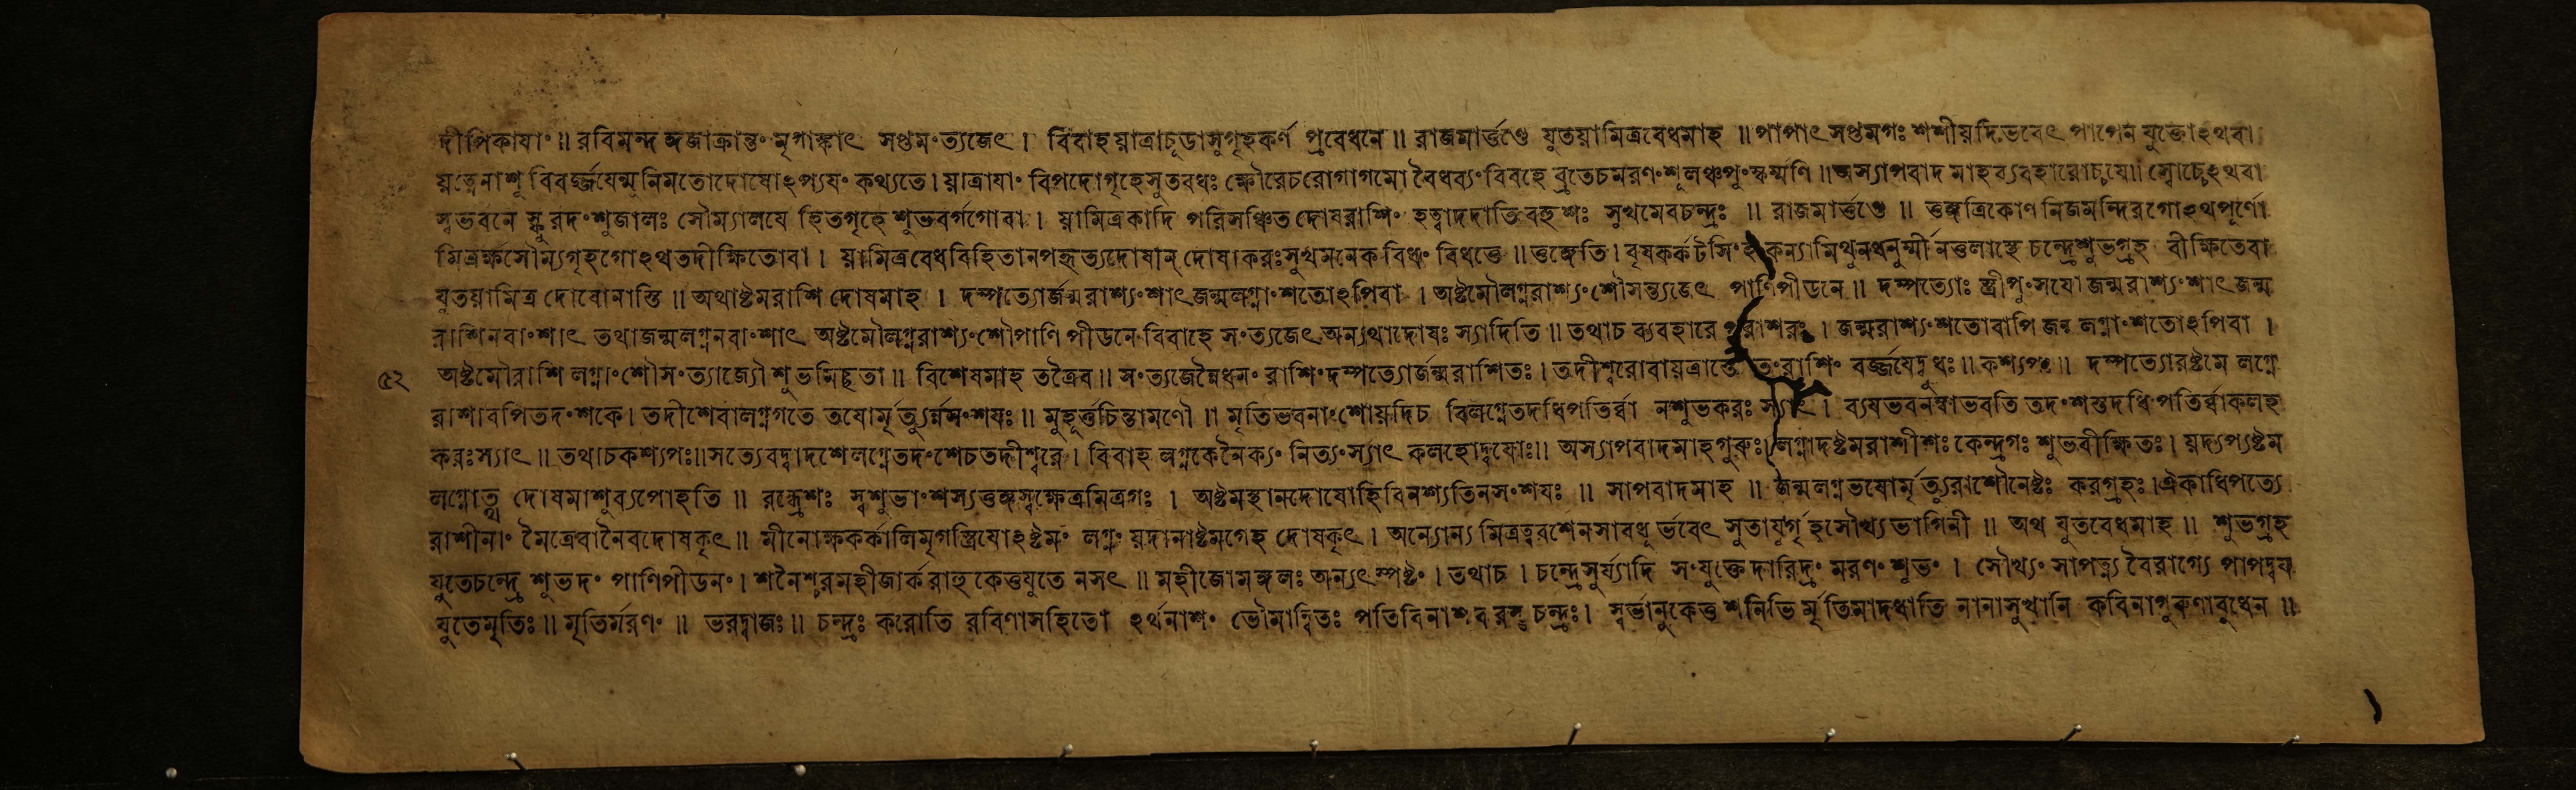 দীপিকাযাং॥ রবিমন্দ ঙ্গজাক্রান্তং মৃগাঙ্কাৎ সপ্তমং ত্যজেৎ। বিবাহ য়াত্রাচূডাসুগৃহকর্ণ প্রবেধনে॥ রাজমার্ত্তণ্ডে যুতয়ামিত্রবেধমাহ॥ পাপাৎ সপ্তমগঃ শশীয়দিভবেৎ পাপেন যুক্তোঽথবা
য়ত্নেনাশু বিবর্জ্জযেন্মুনিমতোদোষোঽপ্যযং কথ্যতে। য়াত্রাযাং বিপদোগৃহেসুতবধঃ ক্ষৌরেচরোগাগমো বৈধব্যং বিবহে ব্রতেচমরণং শূলঞ্চপুংস্কর্ম্মণি॥ অস্যাপবাদ মাহব্যবহারোচ্চযে॥ স্বোচ্চেঽথবা
স্বভবনে স্ফুরদংশুজালঃ সৌম্যালযে হিতগৃহে শুভবর্গগোবা। য়ামিত্রকাদি পরিসঞ্চিত দোষরাশিং হত্বাদদাতিবহুশঃ সুখমেবচন্দ্রঃ॥ রাজমার্ত্তণ্ডে॥ তুঙ্গত্রিকোণ নিজমন্দিরগোঽথপূর্ণো
মিত্রর্ক্ষসৌম্যগৃহগোঽথতদীক্ষিতোবা। য়ামিত্রবেধবিহিতানপহৃত্যদোষান্ দোষাকরঃসুখমনেকবিধং বিধত্তে॥ তুঙ্গেতি। বৃষকর্কটসিংহকন্যামিথুনধনুর্ম্মীনতুলাস্থে চন্দ্রেশুভগ্রহ বীক্ষিতেবা
যুতয়ামিত্র দোষোনাস্তি॥ অথাষ্টমরাশি দোষমাহ। দম্পত্যোর্জন্মরাশ্যংশাৎজন্মলগ্নাংশতোঽপিবা। অষ্টমৌলগ্নরাশ্যংশৌসন্ত্যজেৎ পাণিপীডনে॥ দম্পত্যোঃ স্ত্রীপুংসযো জন্মরাশ্যংশাৎ জন্ম
রাশিনবাংশাৎ তথাজন্মলগ্ননবাংশাৎ অষ্টমৌলগ্নরাশ্যংশৌপাণি পীডনে বিবাহে সংত্যজেৎ অন্যথাদোষঃ স্যাদিতি॥ তথাচ ব্যবহারে পরাশরঃ। জন্মরাশ্যংশতোবাপি জন্ম লগ্নাংশতোঽপিবা।
৫২ অষ্টমৌরাশি লগ্নাংশৌসংত্যাজ্যৌ শুভমিচ্ছতা॥ বিশেষমাহ তত্রৈব॥ সংত্যজেন্নৈধনং রাশিংদম্পত্যোর্জন্মরাশিতঃ। তদীশ্বরোবায়ত্রাস্তে তংরাশিং বর্জ্জযেদ্বুধঃ॥ কশ্যপঃ॥ দম্পত্যোরষ্টমে লগ্নে
রাশাবপিতদংশকে। তদীশেবালগ্নগতে তযোর্মৃত্যুর্ন্নসংশযঃ॥ মুহূর্ত্তচিন্তামণৌ॥ মৃতিভবনাংশোয়দিচ বিলগ্নেতদধিপতির্ব্বা নশুভকরঃ স্যাৎ। ব্যযভবনম্বাভবতি তদংশস্তদধিপতির্ব্বাকলহ
করঃস্যাৎ॥ তথাচকশ্যপঃ॥ সত্যেবদ্বাদশেলগ্নেতদংশেচতদীশ্বরে। বিবাহ লগ্নকেনৈক্যং নিত্যংস্যাৎ কলহোদ্বযোঃ॥ অস্যাপবাদমাহগুরুঃ। লগ্নাদষ্টমরাশীশঃ কেন্দ্রগঃ শুভবীক্ষিতঃ। য়দ্যপ্যষ্টম
লগ্নোত্থ দোষমাশুব্যপোহতি॥ রন্ধ্রেশঃ স্বশুভাংশস্যতুঙ্গস্বক্ষেত্রমিত্রগঃ। অষ্টমস্থানদোষোহিবিনশ্যতিনসংশযঃ॥ সাপবাদমাহ॥ জন্মলগ্নভযোর্মৃত্যুরাশৌনেষ্টঃ করগ্রহঃ। ঐকাধিপত্যে
রাশীনাং মৈত্রেবানৈবদোষকৃৎ॥ মীনোক্ষকর্কালিমৃগস্ত্রিযোঽষ্টমং লগ্নং য়দানাষ্টমগেহ দোষকৃৎ। অন্যোন্য মিত্রত্ববশেনসাবধূ র্ভবেৎ সুতাযুর্গৃহসৌখ্যভাগিনী॥ অথ যুতবেধমাহ॥ শুভগ্রহ
যুতেচন্দ্রে শুভদং পাণিপীডনং। শনৈশ্চরমহীজার্করাহু কেতুযুতে নসৎ॥ মহীজোমঙ্গলঃ অন্যৎস্পষ্টং। তথাচ। চন্দ্রেসূর্য্যাদি সংযুক্তেদারিদ্রং মরণং শুভং। সৌখ্যং সাপত্ন্য বৈরাগ্যে পাপদ্বয
যুতেমৃতিঃ॥ মৃতির্মরণং॥ ভরদ্বাজঃ॥ চন্দ্রঃ করোতি রবিণাসহিতো ঽর্থনাশং ভৌমান্বিতঃ পতিবিনাশ চন্দ্রঃ। স্বর্ভানুকেতু শনিভি র্মৃতিমাদধাতি নানাসুখানি কবিনাগুরুণাবুধেন॥